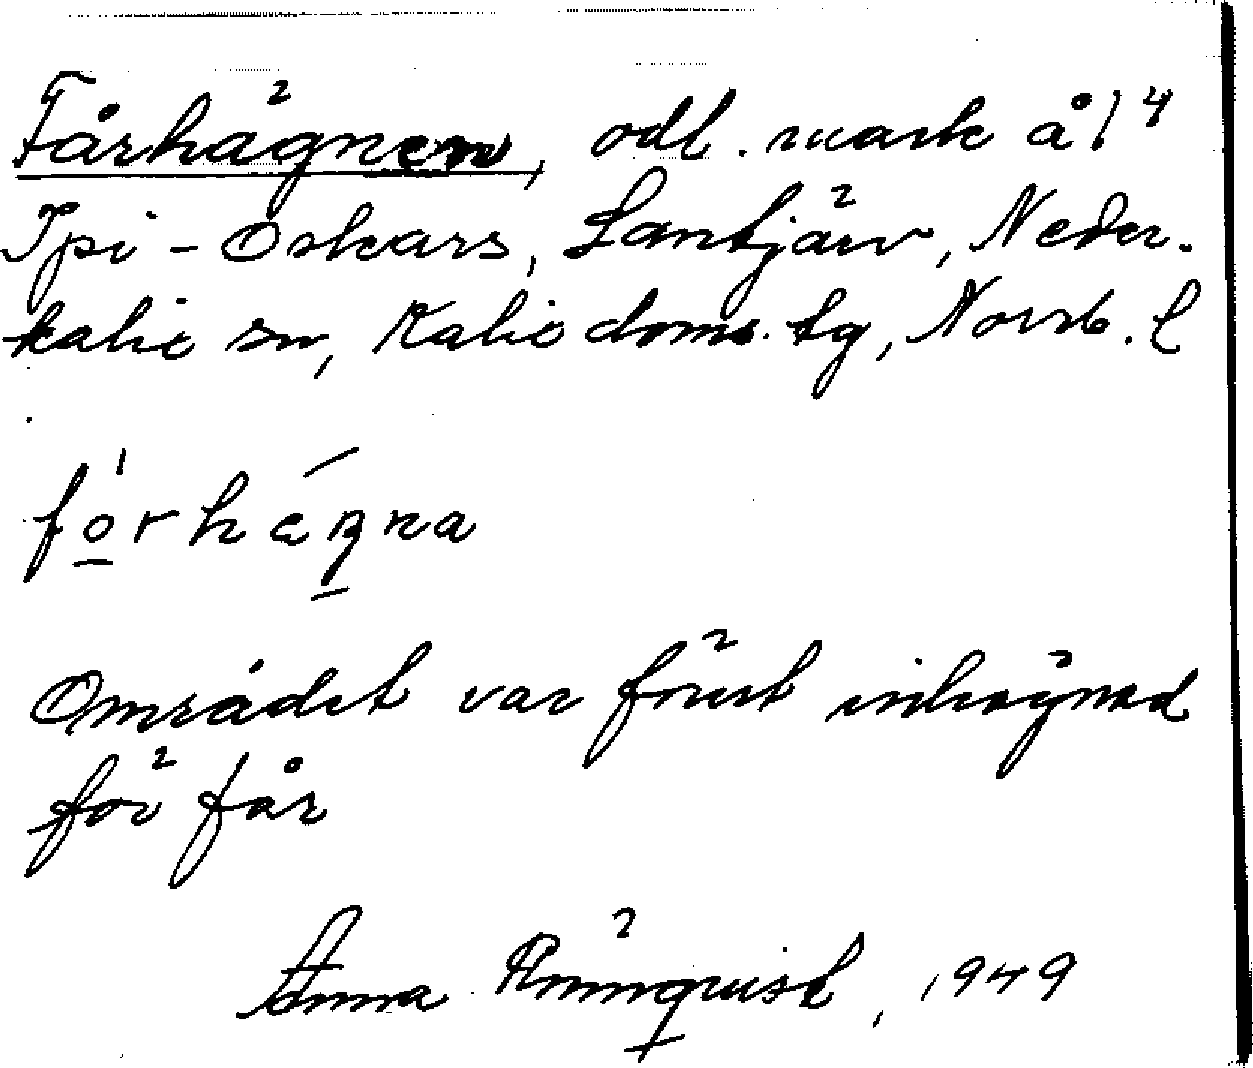 Fårhägnen, odl. mark å 1/4
Ipi-Oskars, Säntjärv, Neder-
kalix sn, Kalix doms. tg, Norrb. l
fo̲rhägna
Området var förut inhägnad
för får
Anna Rönnquist, 1949